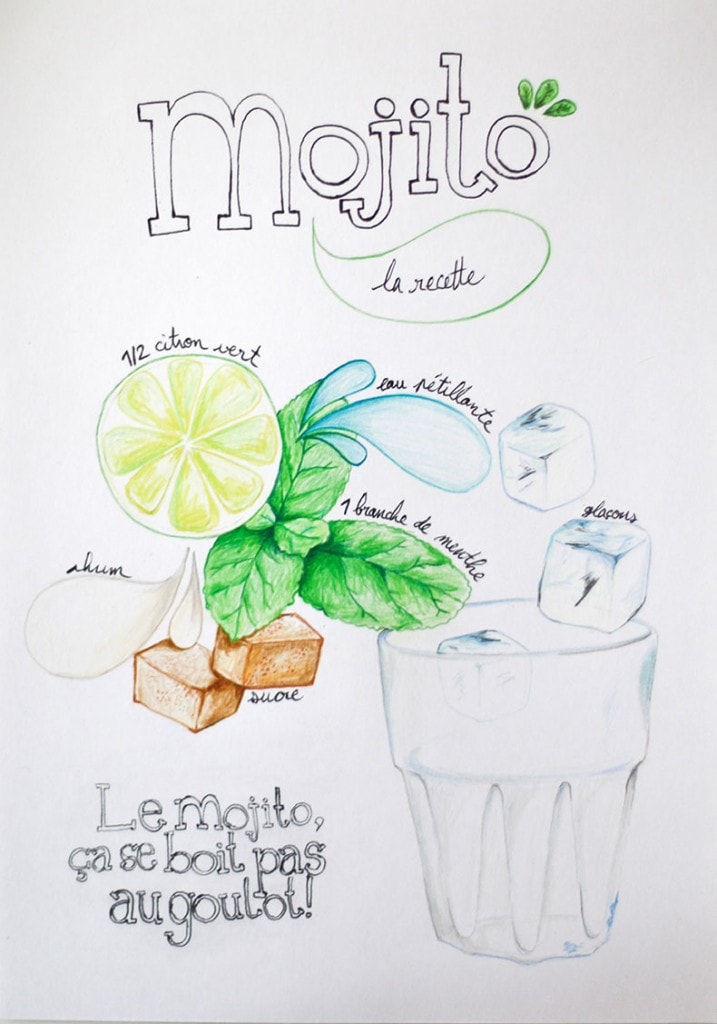 mojito
la recette
1/2 citron vert
eau pétillante
glaçons
1 branche de menthe
rhum
sucre
Le mojito,
ça se boit pas
au goulot!